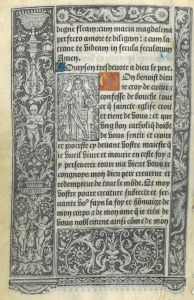 digne fleam: cum maria magdalena
perfecto amore te diligam: z cum la
trone te videam in secula seculorum
Amen.
Oraison tresdevote a dieu le pere
On benoist dieu
ie croy de cueur z
confesse de bouche tout
ce q saincte eglise croit
et tient de vous: et que
ung bon catholic doibt
de vous sentir et croire
et proteste cy devant vostre maieste q
ie vueil vivre et mourir en ceste foy z
y perseverer toute ma vie et vous z re
congnois mon dieu pere createur et re
dempteur de tout le monde. Et moy
vostre povre creature subiecte et ser
vante vo fays la foy et homaige de
mon corps z de mon ame q ie tiens de
vous noblement ainsi come de mon